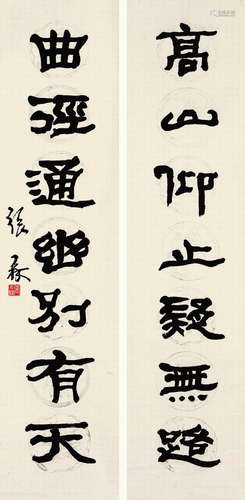 高山仰止疑無路
曲徑通幽別有天
張森